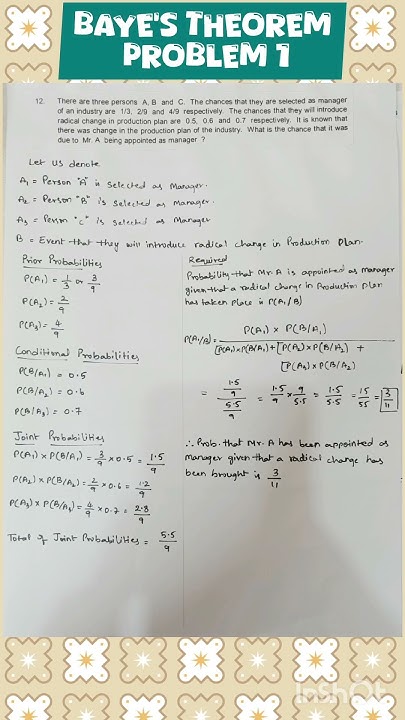 BAYE'S THEOREM
PROBLEM 1
12. There are three persons A, B and C. The chances that they are selected as manager
of an industry are 1/3, 2/9 and 4/9 respectively. The chances that they will introduce
radical change in production plan are 0.5, 0.6 and 0.7 respectively. It is known that
there was change in the production plan of the industry. What is the chance that it was
due to Mr. A being appointed as manager ?
Let us denote
A₁ = Person "A" is selected as Manager.
A₂ = Person "B" is selected as manager.
A₃ = Person "C" is selected as Manager
B = Event that they will introduce radical change in Production Plan.
Prior Probabilities
P(A₁) = 1/3 or 3/9
P(A₂) = 2/9
P(A₃) = 4/9
Conditional Probabilities
P(B/A₁) = 0.5
P(B/A₂) = 0.6
P(B/A₃) = 0.7
Joint Probabilities
P(A₁) × P(B/A₁) = 3/9 × 0.5 = 1.5/9
P(A₂) × P(B/A₂) = 2/9 × 0.6 = 1.2/9
P(A₃) × P(B/A₃) = 4/9 × 0.7 = 2.8/9
Total of Joint Probabilities = 5.5/9
Required
Probability that Mr. A is appointed as manager
given that a radical change in Production plan
has taken place is P(A₁/B)
P(A₁/B) = P(A₁) × P(B/A₁)
[P(A₁) × P(B/A₁) + [P(A₂) × P(B/A₂) +
[P(A₃) × P(B/A₂)
= 1.5/9 / 5.5/9 = 1.5/9 × 9/5.5 = 1.5/5.5 = 15/55 = 3/11
∴ Prob. that Mr. A has been appointed as
manager given that a radical change has
been brought is 3/11
InShOt